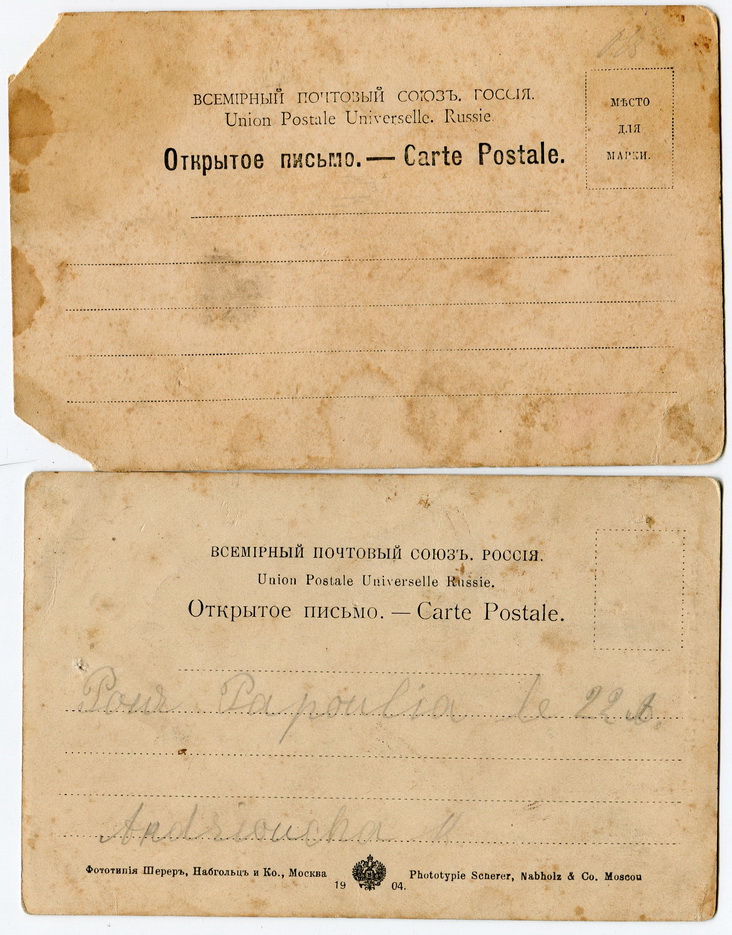 ВСЕМІРНЫЙ ПОЧТОВЫЙ СОЮЗЪ. РОССІЯ.
Union Postale Universelle. Russie.
Открытое письмо. — Carte Postale.
МѢСТО
ДЛЯ
МАРКИ.
ВСЕМІРНЫЙ ПОЧТОВЫЙ СОЮЗЪ. РОССІЯ.
Union Postale Universelle Russie.
Открытое письмо. — Carte Postale.
Pour Papoulia le 22 A.
Andrioucha
Фототипія Шереръ, Набгольцъ и Ко., Москва
1904.
Phototypie Scherer, Nabholz & Co. Moscou